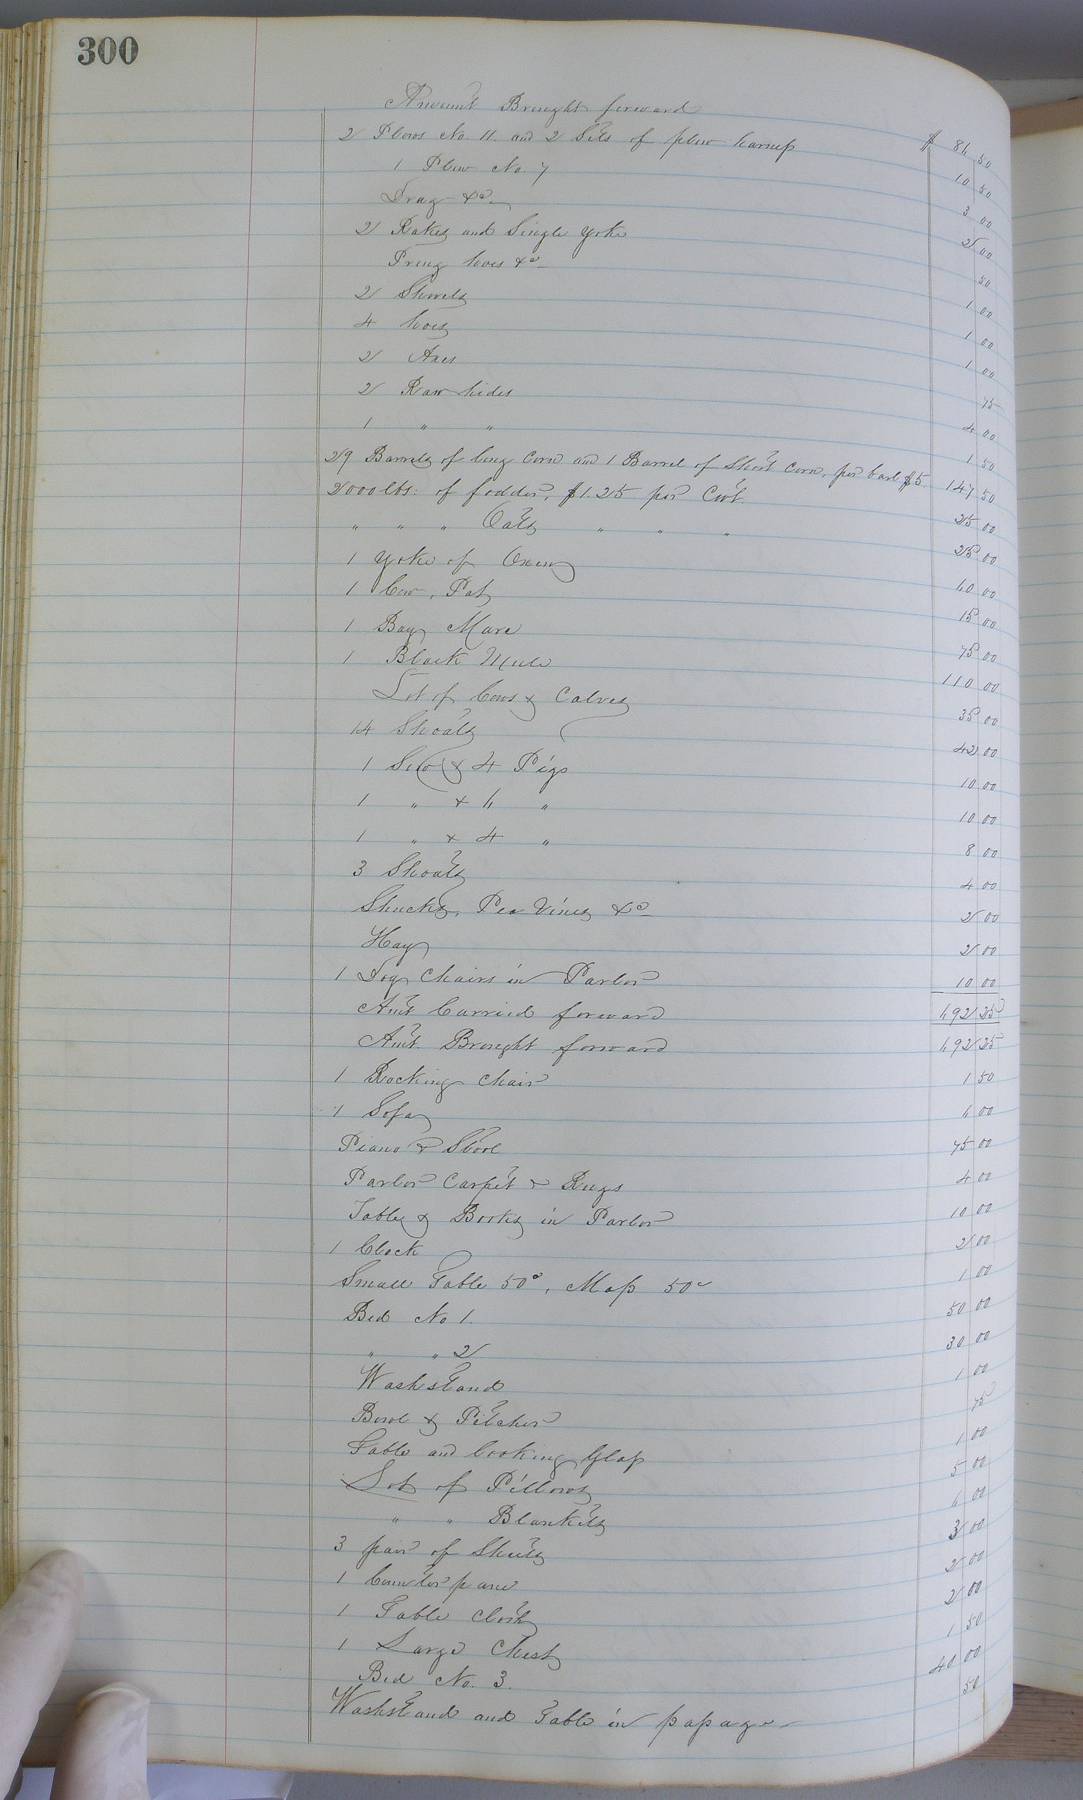 300
Amount Brought forward $ 86 50
2 Plows No. 11. and 2 Sets of plow harness 10 50
1 Plow No. 7 3 00
Drag &c 2 00
2 Rakes and Single Yoke 50
hoes &c 1 00
2 Shovels 1 00
4 hoes 1 00
2 Axes 75
2 Raw hides 4 00
1 " " 1 50
29 Barrels of long Corn and 1 Barrel of Short Corn, per barl $5. 147 50
2000 lbs: of fodder, $1.25 per Cwt. 25 00
" " " Oats " " " 25 00
1 Yoke of Oxen 60 00
1 Cow, Pat 15 00
1 Bay Mare 75 00
1 Black Mule 110 00
Lot of Cows & Calves 35 00
14 Shoats 42 00
1 Sow & 4 Pigs 10 00
1 " & 6 " 10 00
1 " & 4 " 8 00
3 Shoats 4 00
Shucks, Pea Vines &c 2 00
Hay 2 00
1 Doz Chairs in Parlor 10 00
Am't Carried forward 692 25
Am't Brought forward 692 25
1 Rocking Chair 1 50
1 Sofa 6 00
Piano & Stool 75 00
Parlor Carpet & Rugs 4 00
Table & Books in Parlor 10 00
1 Clock 2 00
Small Table 50c, Map 50c 1 00
Bed No 1. 50 00
" " 2 30 00
Washstand 1 00
Bowl & Pitcher 75
Table and Looking Glass 1 00
Lot of Pillows 5 00
" " Blankets 6 00
3 pair of Sheets 3 00
1 Counterpane 2 00
1 Table Cloth 2 00
1 Large Chest 1 50
Bed No. 3. 40 00
Washstand and Table in passage 50